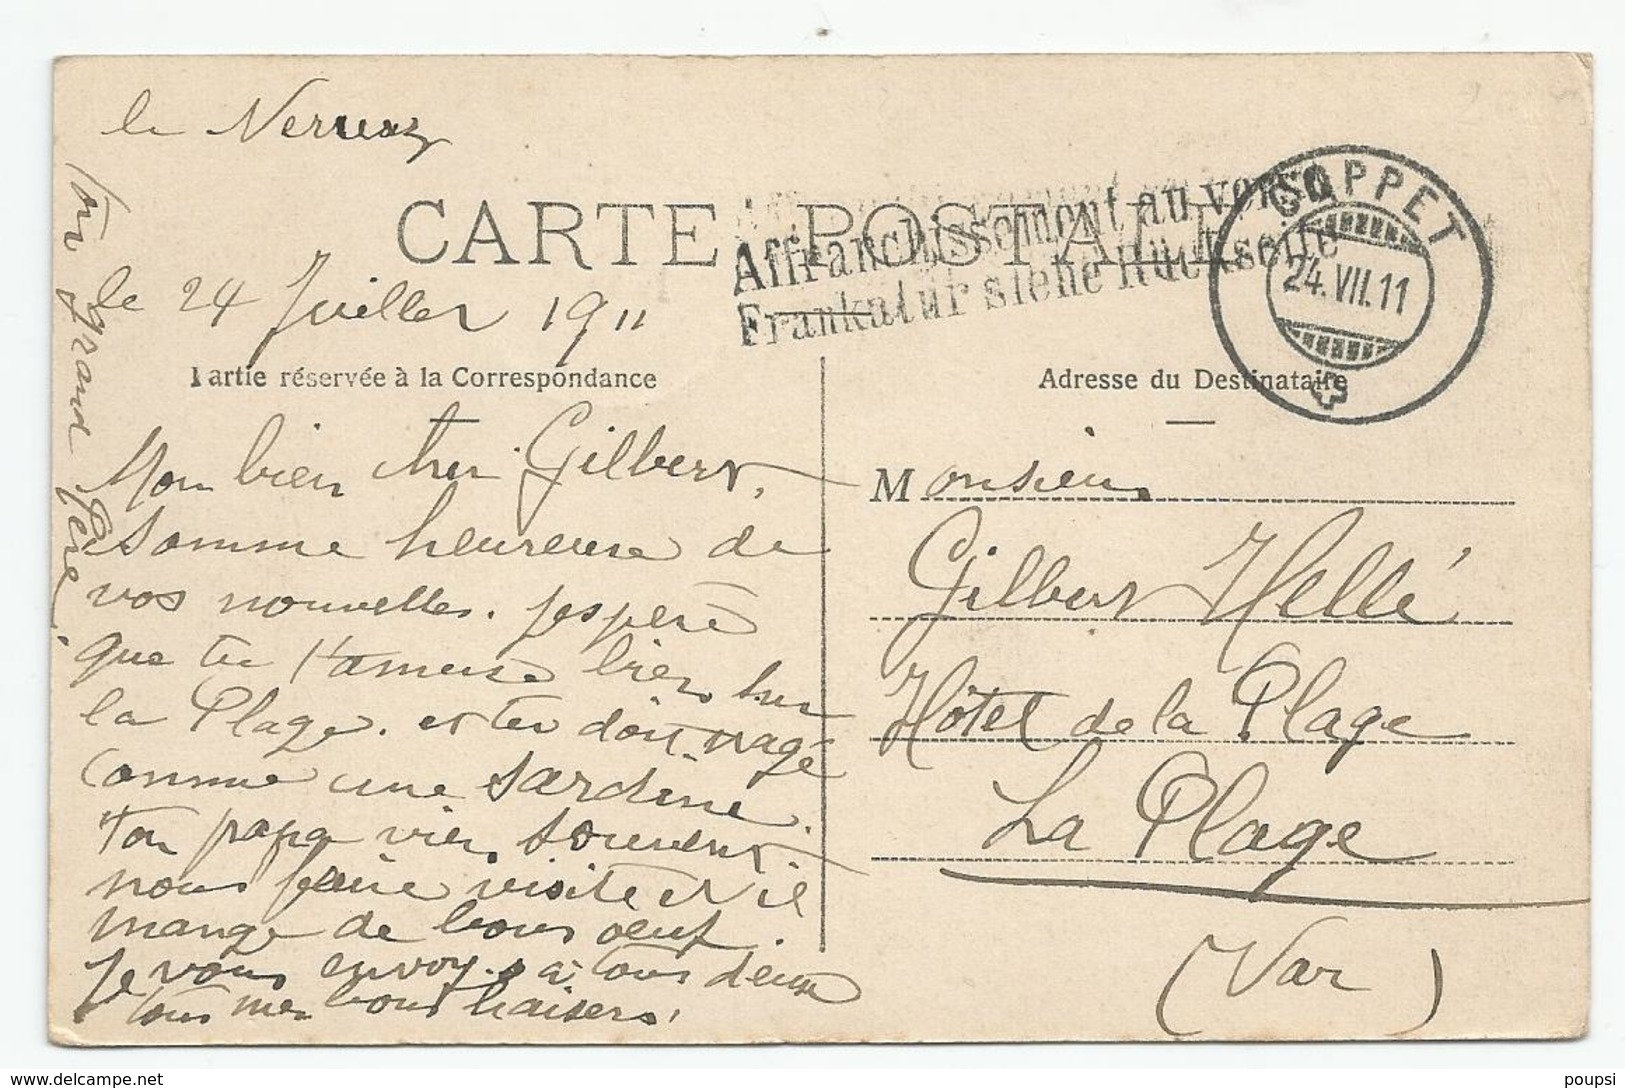 le Verreux
CARTE POSTALE
Affranchissement au verso
Frankatur siehe Rückseite
COPPET
24.VII.11
le 24 Juillet 1911
Partie réservée à la Correspondance
Adresse du Destinataire
Mon bien cher Gilbert,
somme heureuse de
vos nouvelles. j'espère
que tu t'amuse bien sur
la Plage. et tu doit nagé
comme une sardine.
ton papa vien souvent.
nous faire visite et il
mange de bons oeuf.
Je vous envoy a tous deux
tous mes bons baisers.
ton grand Père
Monsieur
Gilbert Hellé
Hôtel de la Plage
La Plage
(Var)
poupsi
delcampe.net